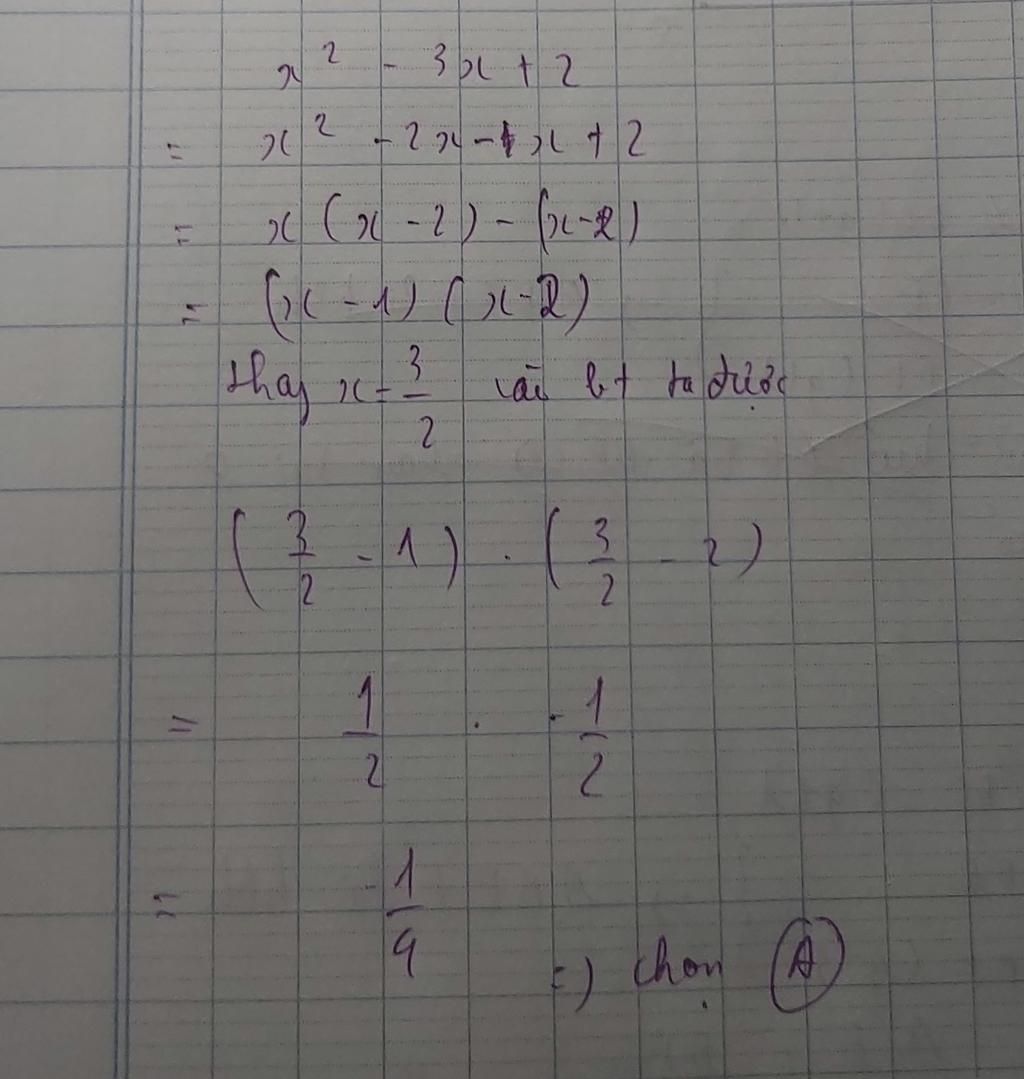 x² - 3x + 2
= x² - 2x - 1x + 2
= x (x - 2) - (x - 2)
= (x - 1) (x - 2)
thay x = 3/2 vào bt ta được
(3/2 - 1) . (3/2 - 2)
= 1/2 . -1/2
= -1/4 => chọn A